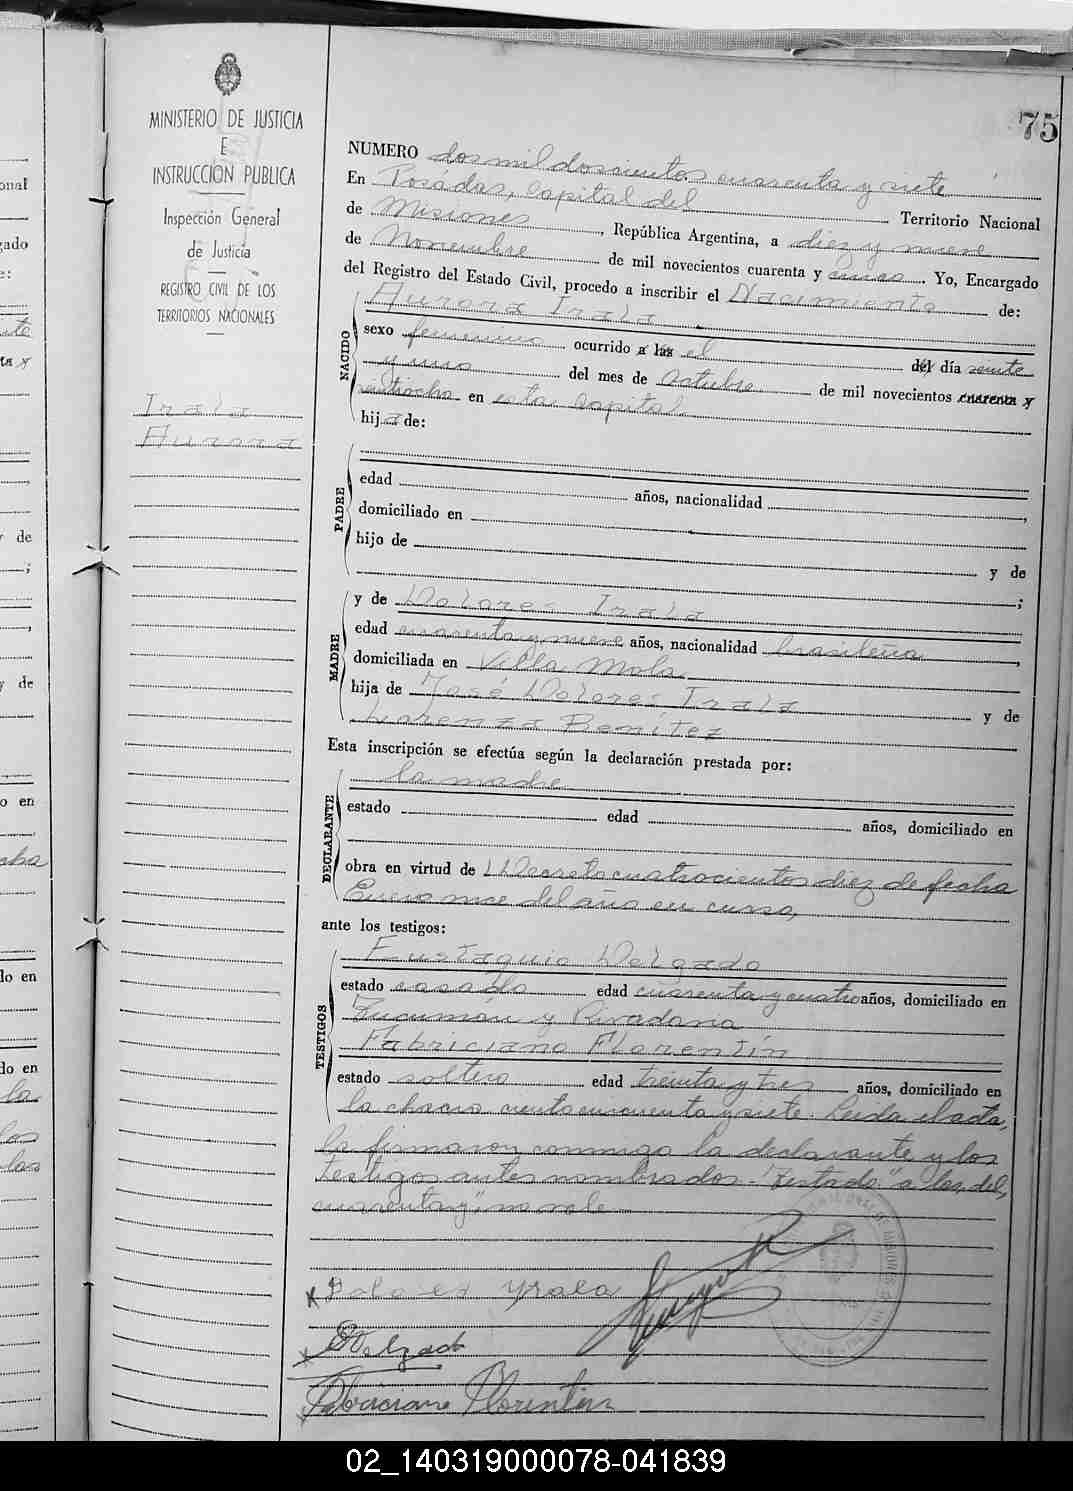 75
MINISTERIO DE JUSTICIA
E
INSTRUCCION PUBLICA
Inspección General
de Justicia
REGISTRO CIVIL DE LOS
TERRITORIOS NACIONALES
Irala
Aurora
NUMERO dos mil doscientos cuarenta y siete
En Posadas, Capital del Territorio Nacional
de Misiones, República Argentina, a diez y nueve
de Noviembre de mil novecientos cuarenta y cinco. Yo, Encargado
del Registro del Estado Civil, procedo a inscribir el Nacimiento de:
NACIDO
Aurora Irala
sexo femenino ocurrido a las el del día veinte
y uno del mes de Octubre de mil novecientos cuarenta y
veintiocho en esta Capital
hija de:
PADRE
edad años, nacionalidad ,
domiciliado en
hijo de
y de
;
MADRE
y de Dolores Irala
edad cuarenta y nueve años, nacionalidad brasileña,
domiciliada en Villa Mola
hija de José Dolores Irala y de
Lorenza Benítez
Esta inscripción se efectúa según la declaración prestada por:
DECLARANTE
la madre
estado edad años, domiciliado en
obra en virtud de Decreto cuatrocientos diez de fecha
Enero once del año en curso,
ante los testigos:
TESTIGOS
Eustaquio Delgado
estado casado edad cuarenta y cuatro años, domiciliado en
Tucumán y Rivadavia
Fabriciano Florentín
estado soltero edad treinta y tres años, domiciliado en
la chacra ciento cincuenta y siete. Leída el acta,
la firmaron conmigo la declarante y los
testigos antes nombrados.- Testado "a las, del,
cuarenta y", no vale
x Dolores Yrala
x Delgado
x Fabriciano Florentin
onal
gado
y de
;
o en
do en
do en
la
los
las
02_140319000078-041839